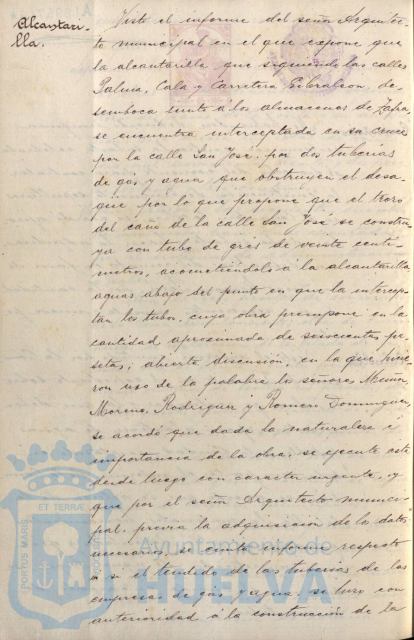 Alcantari-
lla.
Visto el informe del señor Arquitec-
to municipal en el que expone que
la alcantarilla que siguiendo las calles
Palma, Cala y Carretera Gibraleon, de-
semboca junto á los almacenes de Zafra,
se encuentra interceptada en su cruce
por la calle San José, por dos tuberias
de gas y agua que obstruyen el desa-
güe por lo que propone que el trozo
del caño de la calle San José se constru-
ya con tubo de gres de veinte centi-
metros, acometiéndolo á la alcantarilla
aguas abajo del punto en que la intercep-
tan los tubos, cuya obra presupone en la
cantidad aproximada de seiscientas pe-
setas; abierta discusión, en la que hicie-
ron uso de la palabra los señores
Moreno, Rodriguez y Romero Dominguez,
se acordó que dada la naturaleza é
importancia de la obra, se ejecute esta
desde luego con caracter urgente, y
que por el señor Arquitecto munici-
pal, previa la adquisición de los datos
necesarios, se emita informe respecto
á si el tendido de las tuberias de las
empresas de gas y agua, se hizo con
anterioridad á la construcción de la
PORTUS MARIS
ET TERRÆ
Ayuntamiento de
HUELVA